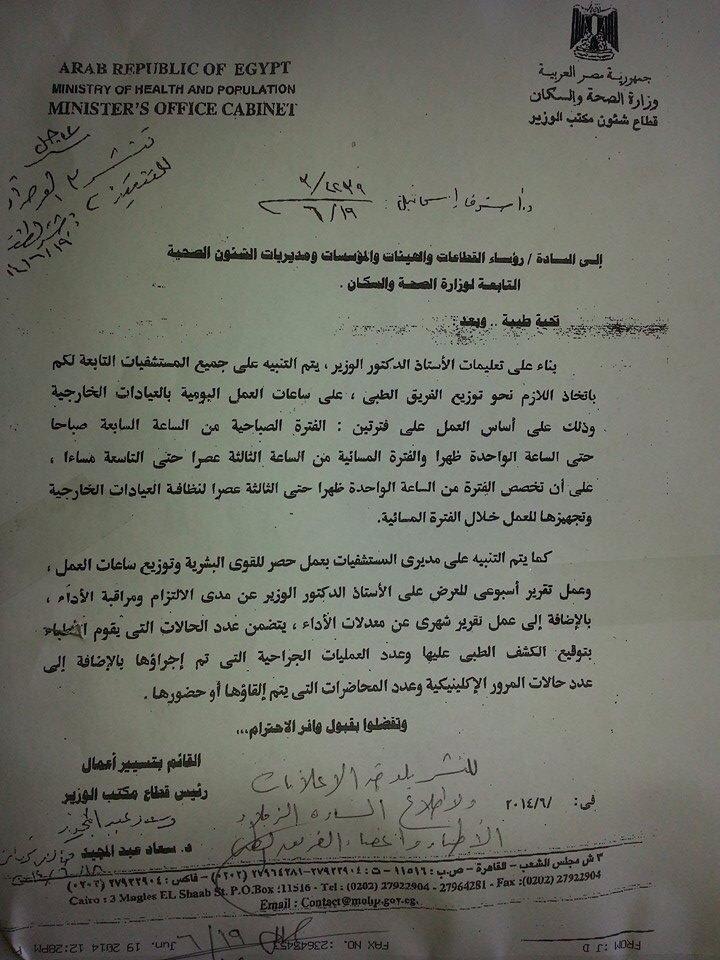 ARAB REPUBLIC OF EGYPT
MINISTRY OF HEALTH AND POPULATION
MINISTER'S OFFICE CABINET
جمهورية مصر العربية
وزارة الصحة والسكان
قطاع شئون مكتب الوزير
تنشر
٣/٢٢٣٩
٦/١٩
إلى السادة / رؤساء القطاعات والهيئات والمؤسسات ومديريات الشئون الصحية
التابعة لوزارة الصحة والسكان .
تحية طيبة .. وبعد
بناء على تعليمات الأستاذ الدكتور الوزير ، يتم التنبيه على جميع المستشفيات التابعة لكم
باتخاذ اللازم نحو توزيع الفريق الطبى ، على ساعات العمل اليومية بالعيادات الخارجية
وذلك على أساس العمل على فترتين : الفترة الصباحية من الساعة السابعة صباحا
حتى الساعة الواحدة ظهرا والفترة المسائية من الساعة الثالثة عصرا حتى التاسعة مساءا ،
على أن تخصص الفترة من الساعة الواحدة ظهرا حتى الثالثة عصرا لنظافة العيادات الخارجية
وتجهيزها للعمل خلال الفترة المسائية.
كما يتم التنبيه على مديرى المستشفيات بعمل حصر للقوى البشرية وتوزيع ساعات العمل ،
وعمل تقرير أسبوعى للعرض على الأستاذ الدكتور الوزير عن مدى الالتزام ومراقبة الأداء ،
بالإضافة إلى عمل تقرير شهرى عن معدلات الأداء ، يتضمن عدد الحالات التى يقوم الأطباء
بتوقيع الكشف الطبى عليها وعدد العمليات الجراحية التى تم إجراؤها بالإضافة إلى
عدد حالات المرور الإكلينيكية وعدد المحاضرات التى يتم إلقاؤها أو حضورها .
وتفضلوا بقبول وافر الاحترام،،،
القائم بتسيير أعمال
رئيس قطاع مكتب الوزير
د. سعاد عبد المجيد
فى: /٢٠١٤/٦
للنشر بلوحة الإعلانات
ولاطلاع السادة الزملاء
الأطباء وأعضاء الفريق الطبى
٣ ش مجلس الشعب - القاهرة - ص.ب : ١١٥١٦ - ت : ٢٧٩٢٢٩٠٤-٢٧٩٦٤٢٨١ (٠٢٠٢) - فاكس : ٢٧٩٢٢٩٠٤ (٠٢٠٢)
Cairo : 3 Magles EL Shaab St. P.O.Box :11516 - Tel : (0202) 27922904 - 27964281 - Fax :(0202) 27922904
Email : Contact@mohp.gov.eg.
٦/١٩
FROM : J D
FAX NO. :23643453
Jun. 19 2014 12:28PM